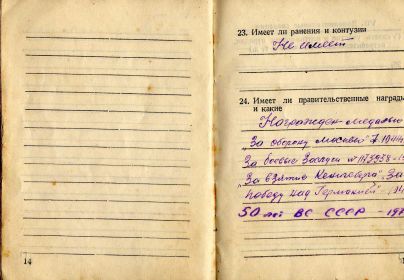 14
23. Имеет ли ранения и контузии
Не имеет
24. Имеет ли правительственные награды
и какие
Награжден медалью
"За оборону Москвы" 7.1944
"За боевые Заслуги №
"За взятие Кенигсберга", За
победу над Германией"
50 лет ВС СССР - 19